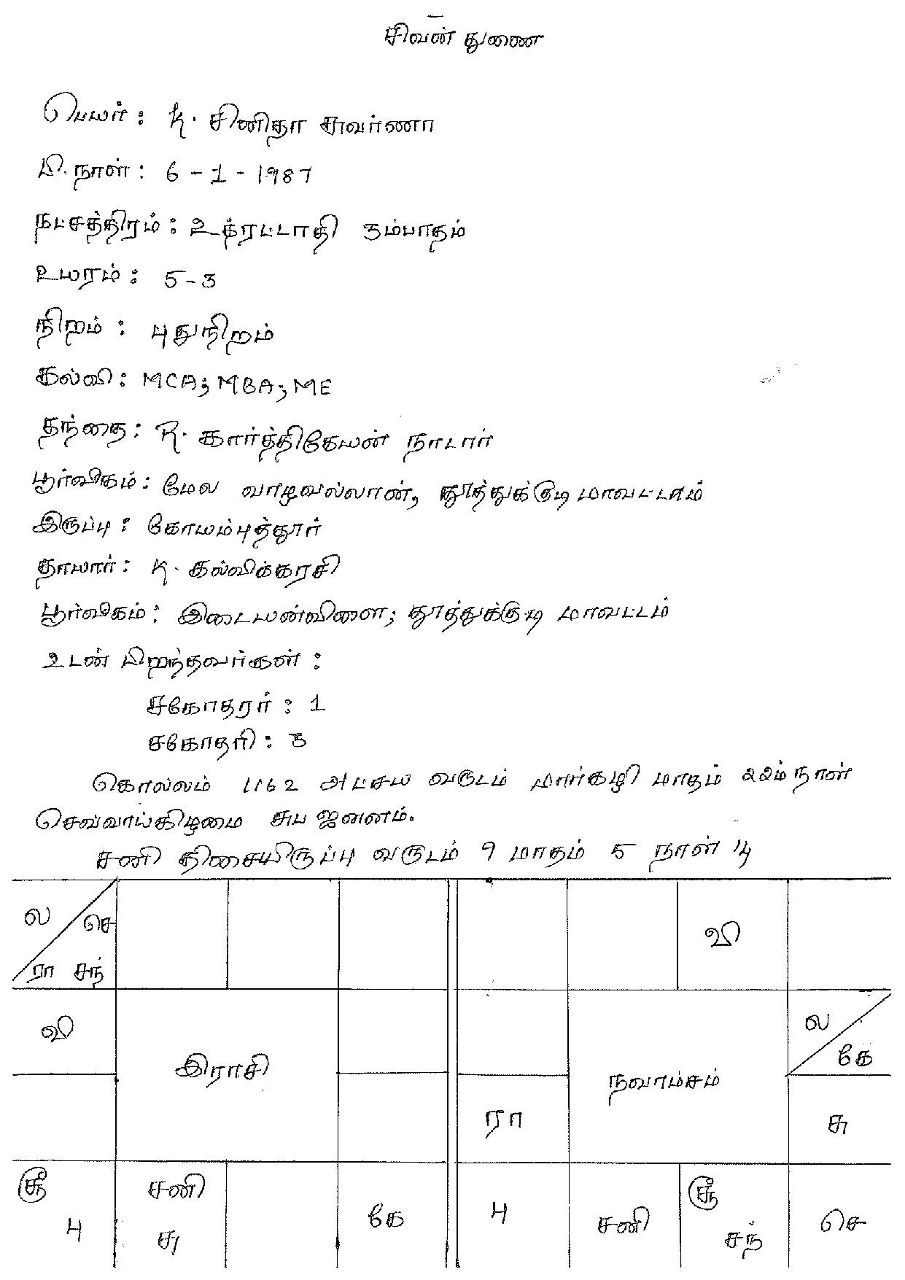 சிவன் துணை
பெயர் : K. சினிதா சுவர்ணா
பி.நாள் : 6 - 1 - 1987
நட்சத்திரம் : உத்ரட்டாதி 3ம்பாதம்
உயரம் : 5-3
நிறம் : புதுநிறம்
கல்வி : MCA; MBA; ME
தந்தை : R. கார்த்திகேயன் நாடார்
பூர்விகம் : மேல வாழவல்லான், தூத்துக்குடி மாவட்டம்
இருப்பு : கோயம்புத்தூர்
தாயார் : K. கல்விக்கரசி
பூர்விகம் : இடையன்விளை; தூத்துக்குடி மாவட்டம்
உடன் பிறந்தவர்கள் :
சகோதரர் : 1
சகோதரி : 3
கொல்லம் 1162 அட்சய வருடம் மார்கழி மாதம் 22ம் நாள்
செவ்வாய்கிழமை சுப ஜனனம்.
சனி திசையிருப்பு வருடம் 9 மாதம் 5 நாள் 14
ல செ
ரா சந்
வி
வி
இராசி
ல
கே
நவாம்சம்
ரா
சு
சூ
பு
சனி
சு
கே
பு
சனி
சூ
சந்
செ